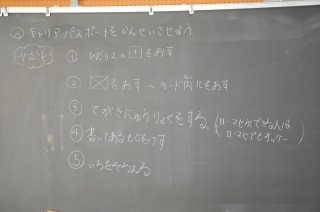 ◎ キャリアパスポートをかんせいさせよう
やること
① ひだり上の↑をおす
② をおす→カード内にをおす
③ てがきにゅうりょくをする。
(ローマじができる人は
ローマじでもオッケー)
④ 書いてあるもじをけす
⑤ いちをそろえる